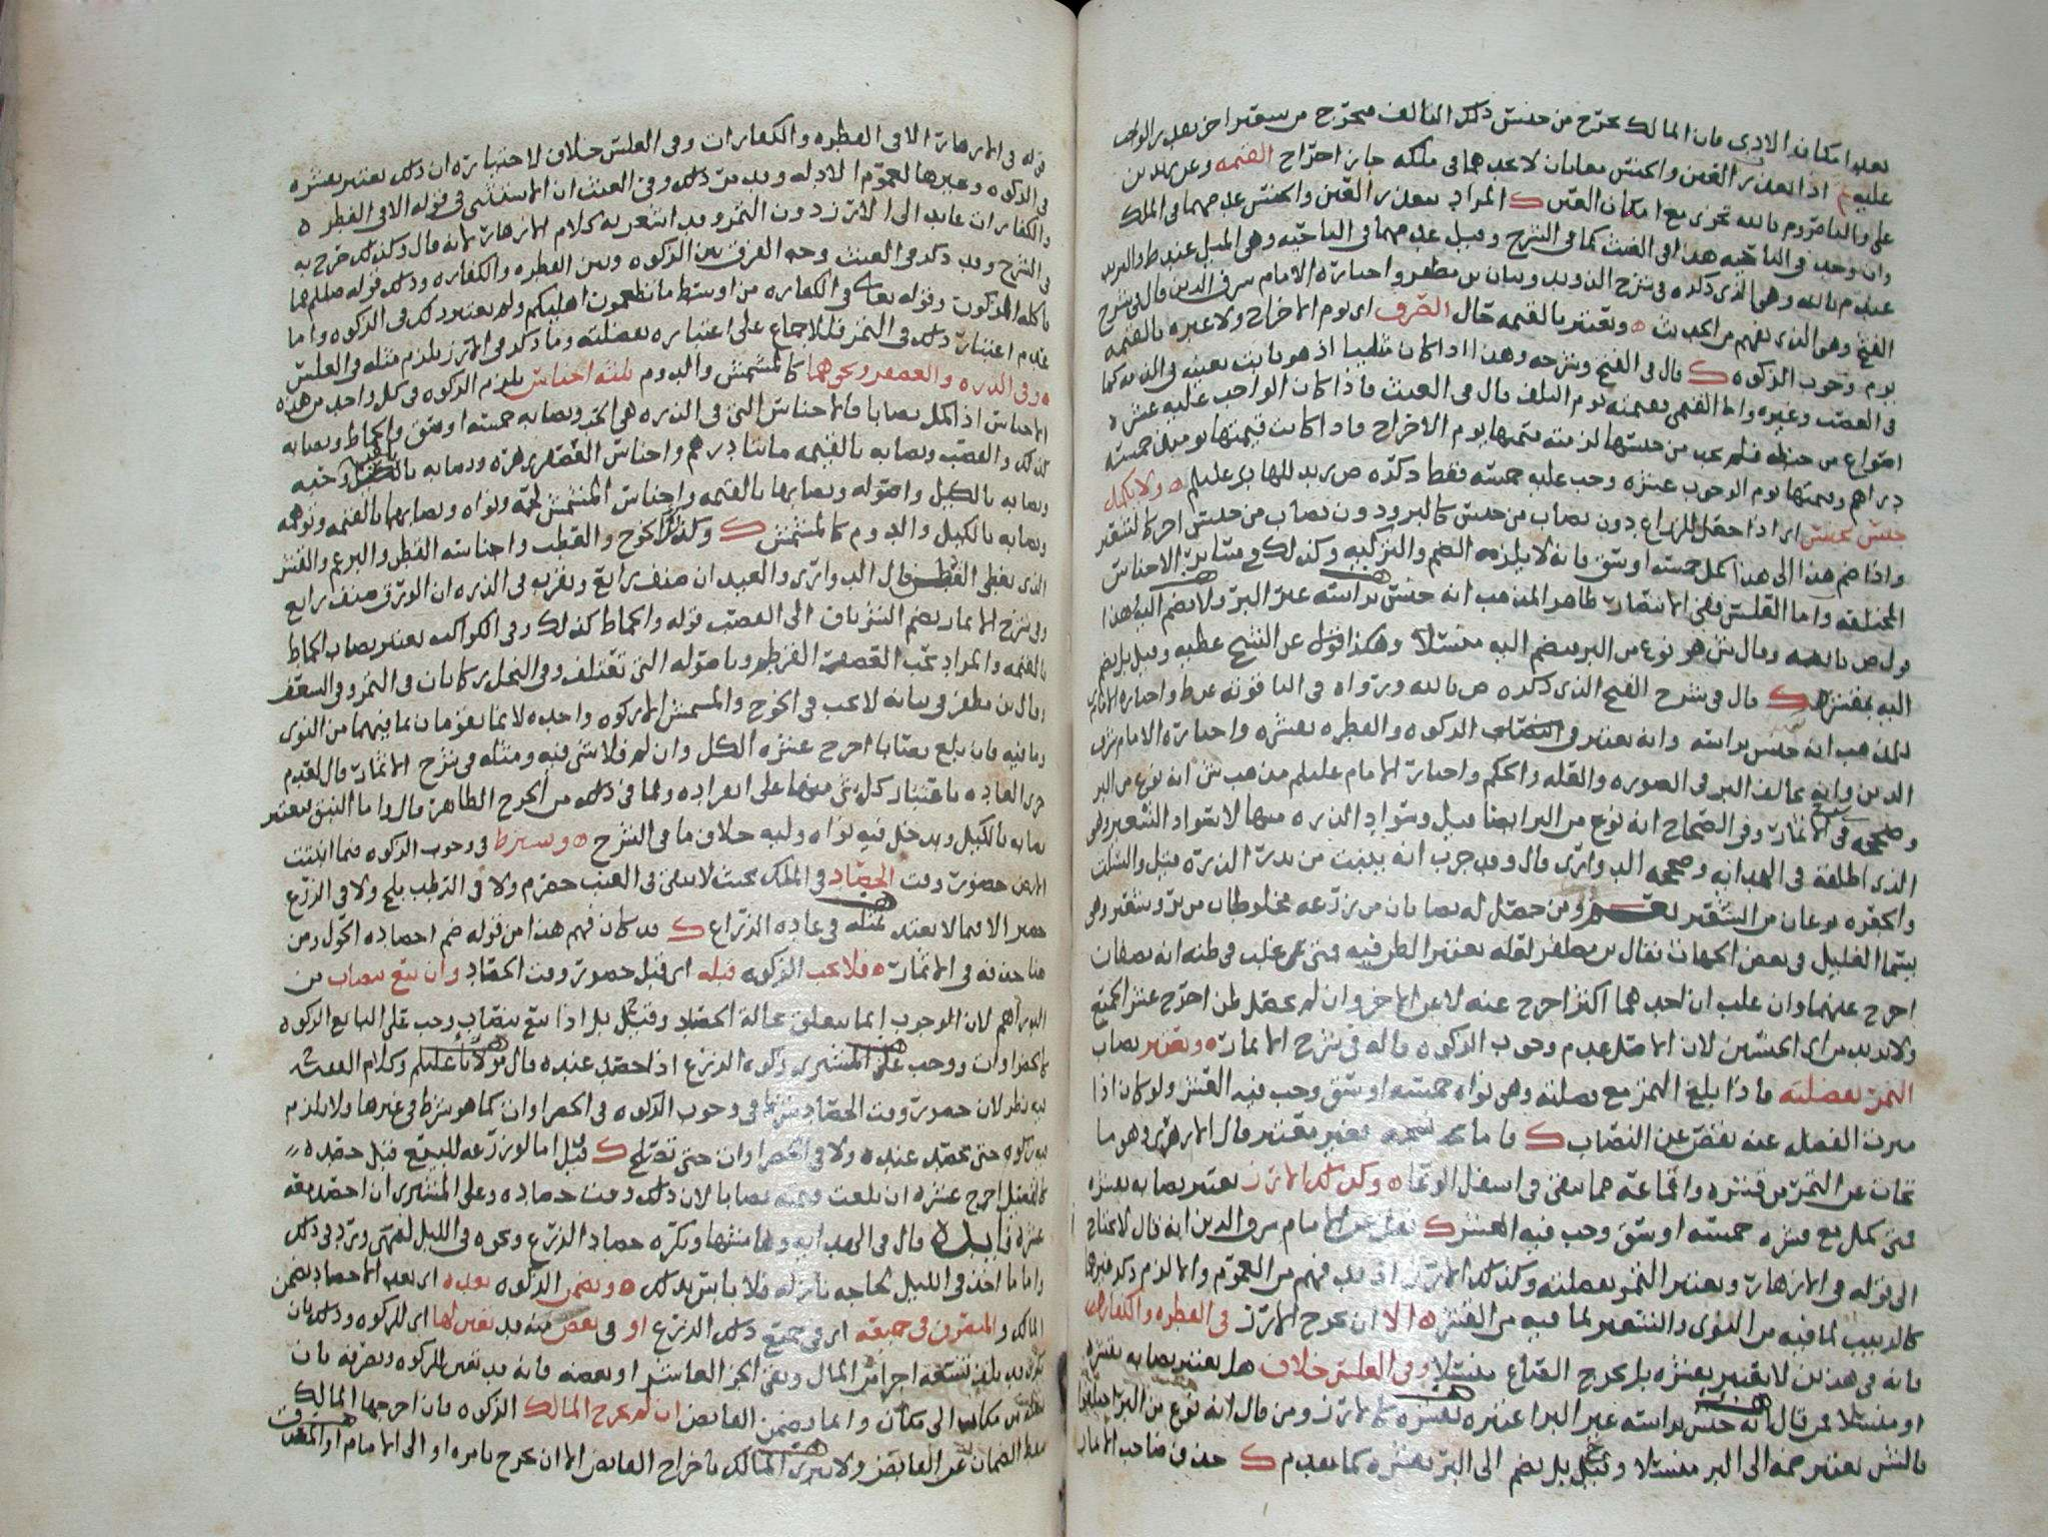 بعد امكان الادى فان المالك يخرج من جنس ذلك التالف فيخرج من شعير اخر بعد
عليه اذا تعذر العين والجنس معا بان لا يجدهما فى ملكه جاز اخراج القيمه وعن زيد بن
على والناصر وم بالله تجزى مع امكان العين ك المراد بتعذر العين والجنس عدمهما فى الملك
وان وجد فى الناحيه هذا فى الغيث كما فى الشرح وقيل عدمهما فى الناحيه
عند م بالله وهو الذى ذكره فى شرح وبيان بن مظفر واختاره الامام شرف الدين قال فى شرح
الفتح وهو الذى يفهم من الحديث ويعتبر بالقيمه حال الصرف اى يوم الاخراج ولا عبره بالقيمه
يوم وجوب الزكوه ك قال فى الفتح وشرحه وهذا اذا كان مثليا اذ هو ثابت بعينه فى الذمه كما
فى الغصب وغيره واما القيمى بقيمته يوم التلف قال فى الغيث فاذا كان الواجب عليه عشره
اصواع من حنطه فلم يجد من جنسها لزمته قيمتها يوم الاخراج فاذا كانت قيمتها يومئذ خمسه
دراهم وقيمتها يوم الوجوب عشره وجب عليه خمسه فقط ذكره ض زيد للهادى عليلم ولا يكمل
جنس بجنس اى اذا حصل للزراع دون نصاب من جنس كالبر ودون نصاب من جنس اخر كالشعير
واذا ضم هذا الى هذا كمل خمسه اوسق فانه لا يلزمه الضم والتزكيه وكذلك فى سائر الاجناس
المختلفه واما العلس ففى الانتصار ظاهر المذهب انه جنس براسه غير البر ولا يضم اليه هذا
قول ص بالله وقال ش هو نوع من البر يضم اليه منسلا وهكذا قول عن الشيخ عطيه وقيل بل يضم
اليه بقشره ك قال فى شرح الفتح الذى ذكره ص بالله ورواه فى الياقوته عن ط واختاره الامام
للمذهب انه جنس براسه وانه يعتبر فى النصاب الزكوه والفطره بقشره واختاره الامام شرف
الدين وانه يخالف البر فى الصوره والقله والحكم واختاره الامام عليلم مذهب ش انه نوع من البر
وصححه فى الاثمار وفى الصحاح انه نوع من البر ايضا قيل وسواد الذره منها لا سواد الشعير وهو
الذى اطلقه فى الهدايه وصححه الدوارى قال وقد جرب انه ينبت من بذر الذره قيل والسلت
والحقره نوعان من الشعير ومن حصل له نصابان من زرعه مخلوطان من بر وشعير وهو
يسما الغليل فى بعض الجهات فقال بن مظفر لعله يعتبر الظن فيه فمتى غلب فى ظنه انه نصفان
اخرج عنهما وان غلب ان احدهما اكثر اخرج عنه لا عن الاخر وان لم يحصل ظن اخرج عشر الجميع
ولا تردد من اى الجنسين لان الاصل عدم وجوب الزكوه قاله فى شرح الاثمار ويعتبر نصاب
التمر بفضلته فاذا بلغ التمر مع فضلته وهى نواه خمسه اوسق وجب فيه العشر ولو كان اذا
ميزت الفضل عنه نقص عن النصاب ك فاما قمعه فغير معتبر قال الازهرى وهو ما
نحات عن التمر من قشره واقماعه مما يبقى فى اسفل الوعا وكذلك الارز يعتبر نصابه بقشره
فمتى كمل مع قشره خمسه اوسق وجب فيه العشر ك نقل عن الامام شرف الدين انه قال لا يحتاج
الى قوله فى الازهار ويعتبر التمر بفضلته وكذلك الارز اذ قد فهم من العموم والا لزم ذكر غيرهما
كالزبيب لما فيه من النوى والشعير لما فيه من القشر الا ان يخرج الارز فى الفطره والكفارات
فانه فى هذين لا يعتبر بقشره بل يخرج الصاع منسلا وفى العلس خلاف هل يعتبر نصابه بقشره
او منسلا فمن قال انه جنس براسه غير البر اعتبره بقشره كالارز ومن قال انه نوع من البر اختلفوا
بالنس يعتبر ضمه الى البر منسلا وقيل بل يضم الى البر بقشره كما تقدم ك حذف صاحب الاثمار
قوله فى الازهار الا فى الفطره والكفارات وفى العلس خلاف لاختياره ان ذلك يعتبر بقشره
فى الزكوه وغيرها لعموم الادله وقد مر ذلك وفى الغيث ان الاستثنى فى قوله الا فى الفطره
والكفارات عايد الى الارز دون التمر وقد اشعر به كلام الازهار لانه قال وكذلك صرح به
فى الشرح وقد ذكر فى الغيث وجه الفرق بين الزكوه وبين الفطره والكفاره وذلك قوله صللم مما
تاكله المزكون وقوله تعالى فى الكفاره من اوسط ما تطعمون اهليكم ولم يعتبر ذلك فى الزكوه واما
عدم اعتبار ذلك فى التمر فللاجماع على اعتباره بفضلته وما ذكر فى الارز يلزم مثله فى العلس
وفى الذره والعصفر ونحوهما كالمشمش والدوم ثلثه اجناس يلزم الزكوه فى كل واحد من هذه
الاجناس اذا كمل نصابا فالاجناس التى فى الذره هى الحب ونصابه خمسه اوسق والحماط ونصابه
كذلك والقصب ونصابه بالقيمه مائتا درهم واجناس العصفر زهره ونصابه بالكيل وحبه
ونصابه بالكيل واصوله ونصابها بالقيمه واجناس المشمش لحمه ونواه ونصابهما بالقيمه وتوهمه
ونصابه بالكيل والدوم كالمشمش ك وكذلك الخوخ والقطب واجناسه القطن والبرعم والقشر
الذى يغطى القطن قال الدوارى والعيدان صنف رابع ويقرب فى الذره ان الورق صنف رابع
وفى شرح الاثمار يضم الشرياف الى القصب قوله والحماط كذلك وفى الكواكب يعتبر نصاب الحماط
بالقيمه والمراد بحب العصفر القرطم وباصوله التى تعتلف وفى النحل كانا فى التمر وفى السعف
وقال بن مظفر فى بيانه لا يجب فى الخوخ والمشمش الا زكوه واحده لانما يقومان بما فيهما من النوى
وما فيه فان بلغ نصابا اخرج عشره الكل وان لم فلا شى فيه ومثله فى شرح الاثمار قال لعدم
جرى العاده باعتبار كل شى منهما على انفراده ولما فى ذلك من الحرج الظاهر قال واما النبق فيعتبر
نصابه بالكيل ويدخل فيه نواه وليه خلاف ما فى الشرح وشرط فى وجوب الزكوه فيما انبتت
الارض حضور وقت الحصاد فى الملك بحيث لا يبقى فى العنب حصرم ولا فى الرطب بلح ولا فى الزرع
خضر الا فيما لا يعتد بمثله فى عاده الزراع ك قد كان فهم هذا من قوله ضم احصاده الحول ومن
هنا حذفه فى الاثمار فلا يجب الزكوه قبله اى قبل حضور وقت الحصاد وان بيع بنصاب من
الدراهم لان الوجوب انما يتعلق بحاله الحصاد وقيل بل اذا بيع بنصاب وجب على البايع الزكوه
كالخضراوات ووجب على المشترى زكوه الزرع اذا حصد عنده قال مولانا عليلم وكلام الفقيه
فيه نظر لان حضور وقت الحصاد شرط فى وجوب الزكوه فى الخضراوات كما هو شرط فى غيرها ولا يلزم
فيه زكوه حتى يحصد عنده ولا فى الخضراوات حتى تصلح ك قيل اما لو زرعه للبيع قبل حصده
كالقصيل اخرج عشره ان بلغت قيمته نصابا لان ذلك وقت حصاده وعلى المشترى ان احصد بقيه
عشره فايده قال فى الهدايه وهامشها ويكره حصاد الزرع ونحوه فى الليل لنهى ورد فى ذلك
واما ما اخذ فى الليل لحاجه نازله فلا باس بذلك وتضمن الزكوه بعده اى بعد الاحصاد يضمن
المالك والمتصرف فى جميعه اى فى جميع ذلك الزرع او فى بعض منه قد تعين لها اى للزكوه وذلك بان
يكون قد تلف تسعه اجزاء المال وبقى الجز العاشر او بعضه فانه قد تعين للزكوه وتصرفه بان
ينقله من مكان الى مكان وانما يضمن القابض ان لم يخرج المالك الزكوه فان اخرجها المالك
سقط الضمان عن القابض ولا يبرى المالك باخراج القابض الا ان يخرج بامره او الى الامام او المصدق